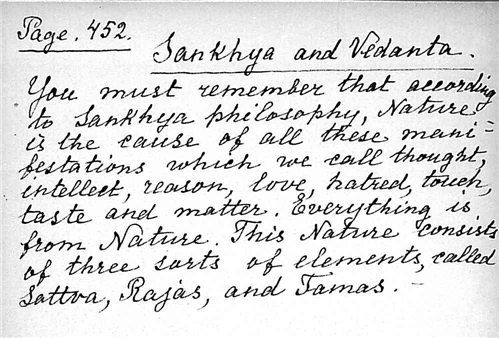 Page. 452.
Sankhya and Vedanta.
You must remember that according
to Sankhya philosophy, Nature
is the cause of all these mani=
festations which we call thought,
intellect, reason, love, hatred, touch,
taste and matter. Everything is
from Nature. This Nature consists
of three sorts of elements, called
Sattva, Rajas, and Tamas. –